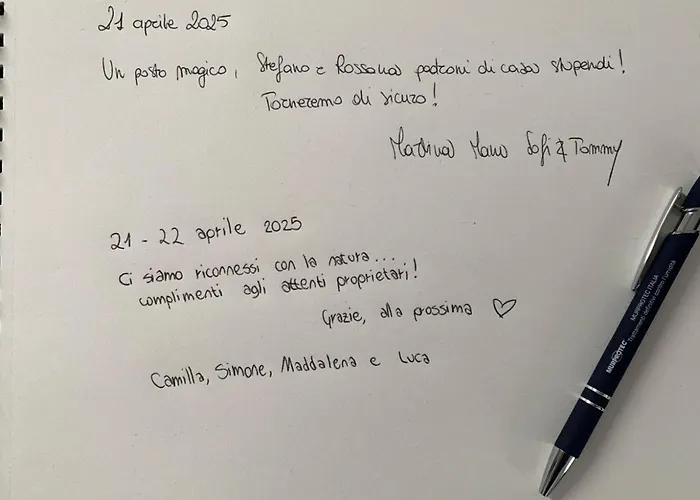 21 aprile 2025
Un posto magico, Stefano e Rossana padroni di casa stupendi!
Torneremo di sicuro!
Martina Manu Sofi & Tommy
21 - 22 aprile 2025
Ci siamo riconnessi con la natura...
complimenti agli attenti proprietari!
Grazie, alla prossima ♡
Camilla, Simone, Maddalena e Luca
MURPROTEC MURPROTEC ITALIA
Trattamenti definitivi contro l'umidità